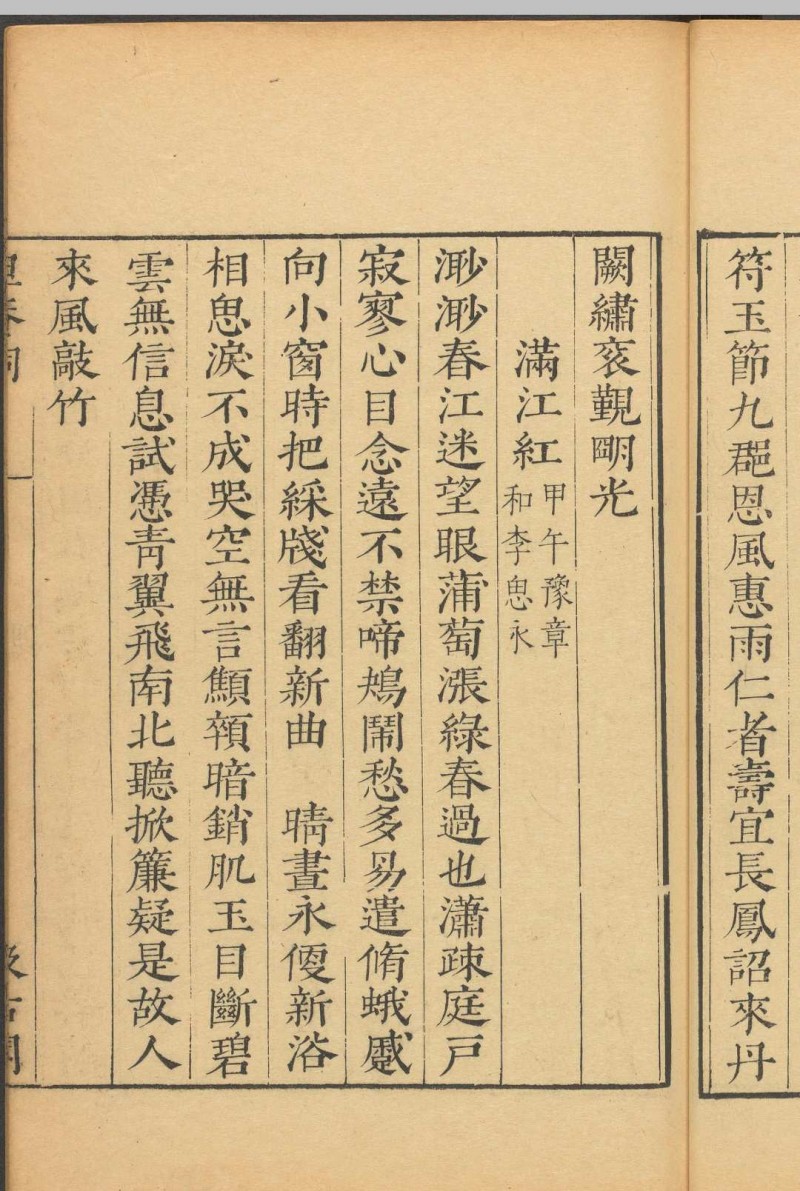 符玉節九郡恩風惠雨仁者壽宜長鳳詔來丹
闕繡衮覲明光
滿江紅
甲午豫章
和李思永
渺渺春江迷望眼蒲萄漲綠春過也瀟疎庭戸
寂寥心目念遠不禁啼鴂鬧愁多昜遣脩蛾蹙
向小窗時把綵牋看翻新曲　晴晝永便新浴
相思淚不成哭空無言顦顇暗銷肌玉目斷碧
雲無信息試憑靑翼飛南北聽掀簾疑是故人
來風敲竹